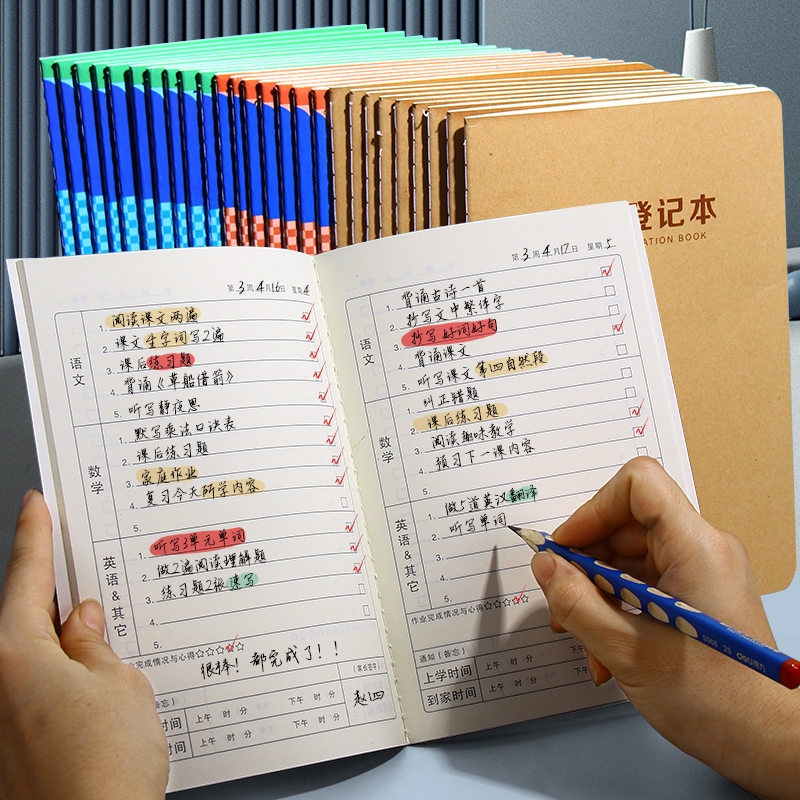 登记本
ATION BOOK
第3周4月16日 星期4
语文
1. 阅读课文两遍
2. 课文生字词写2遍
3. 课后练习题
4. 背诵《草船借箭》
5. 听写静夜思
数学
1. 默写乘法口诀表
2. 课后练习题
3. 家庭作业
4. 复习今天所学内容
5.
英语&其它
1. 听写3单元单词
2. 做2遍阅读理解题
3. 练习题2张速写
4.
5.
业完成情况与心得☆☆☆☆☆
很棒! 都完成了!!
(备忘)
(家长签字)
赵四
时间 上午 时 分 下午 时 分
时间 上午 时 分 下午 时 分
第3周4月17日 星期5
语文
1. 背诵古诗一首
2. 抄写文中繁体字
3. 抄写好词好句
4. 背诵课文
5. 听写课文第四自然段
数学
1. 纠正错题
2. 课后练习题
3. 阅读趣味数学
4. 预习下一课内容
5.
英语&其它
1. 做5道英汉翻译
2. 听写单词
3.
4.
5.
作业完成情况与心得☆☆☆☆☆
通知(备忘)
上学时间 上午 时 分 下午
到家时间 上午 时 分 下午
S966 2B deli得力